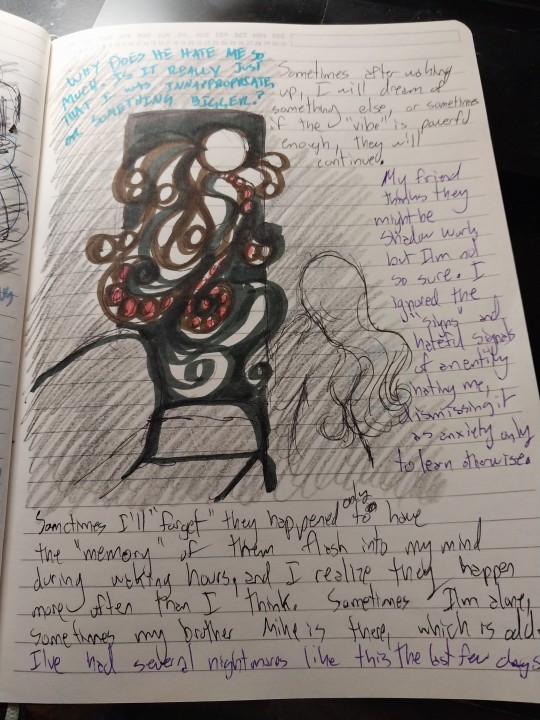 WHY DOES HE HATE ME SO
MUCH. IS IT REALLY JUST
THAT I WAS INNAPROPRIATE,
OR SOMETHING BIGGER?
Sometimes after waking
up, I will dream of
something else, or sometimes
if the "vibe" is powerful
enough, they will
continue.
My friend
thinks they
might be
shadow work
but I'm not
so sure. I
ignored the
"signs" and
hateful signals
of an entity
hating me,
dismissing it
as anxiety only
to learn otherwise.
Sometimes I'll "forget" they happened only to have
the "memory" of them flash into my mind
during waking hours, and I realize they happen
more often than I think. Sometimes I'm alone,
sometimes my brother Mike is there, which is odd.
I've had several nightmares like this the last few days